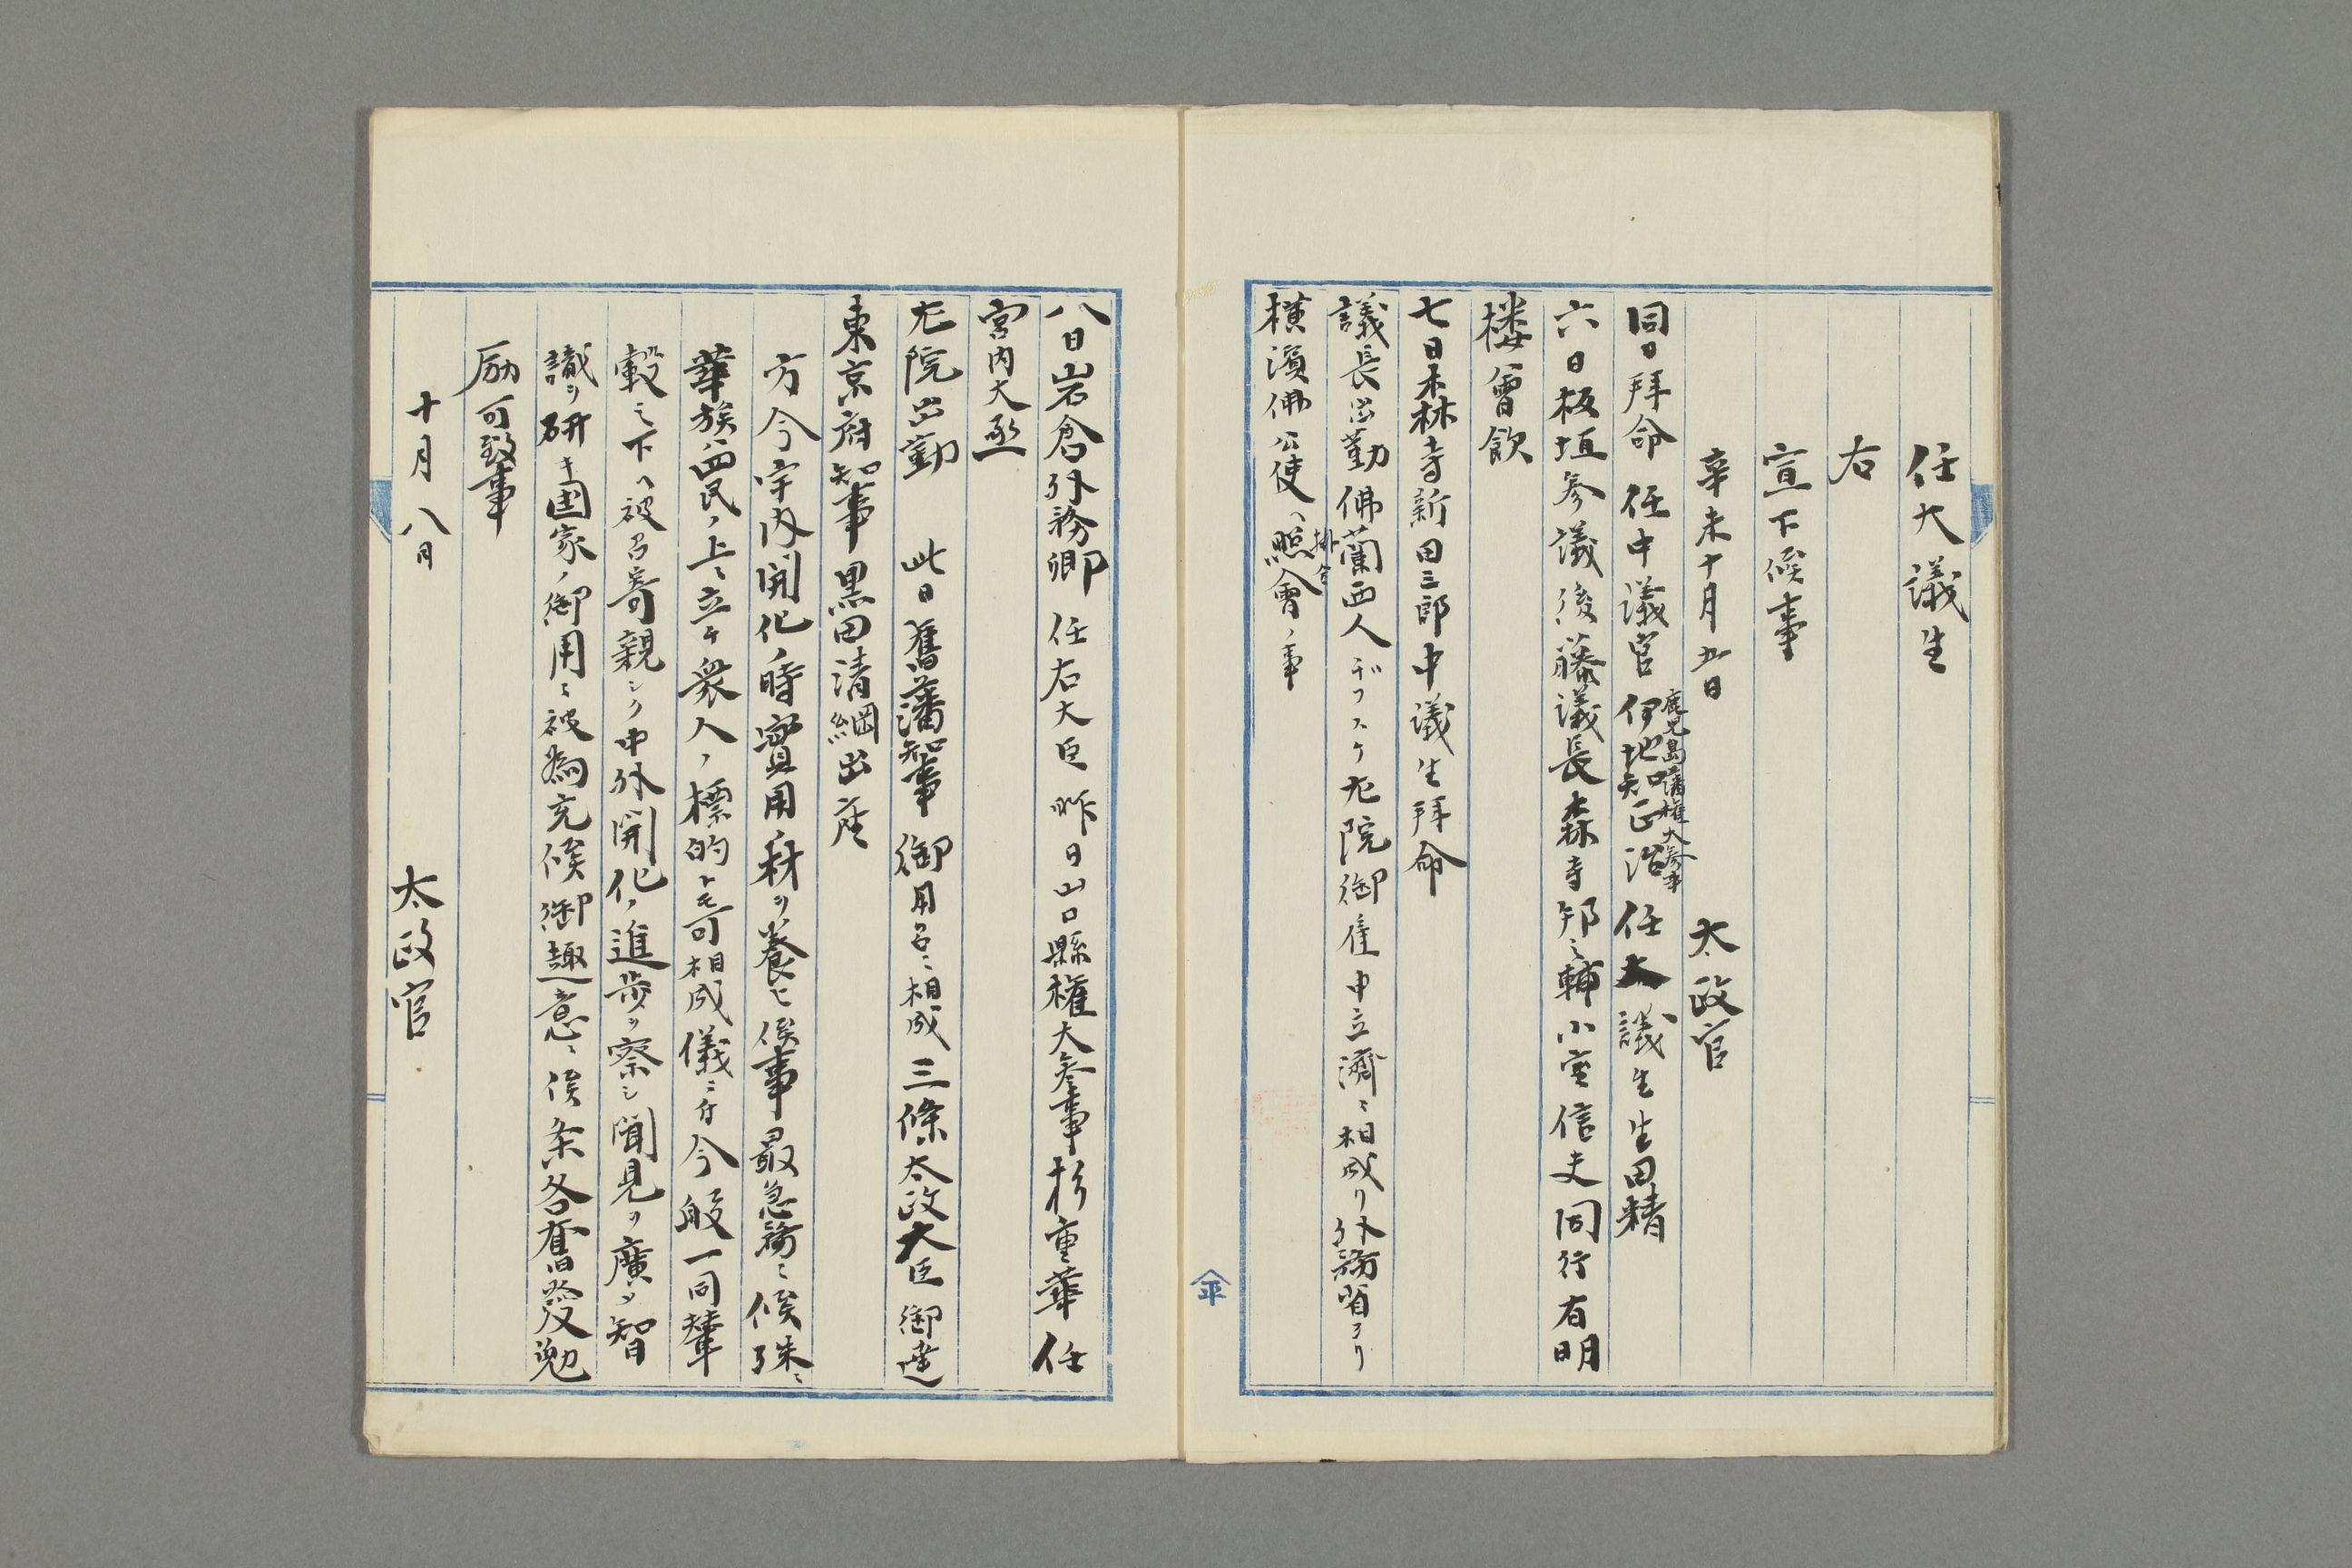 任大議生
右
宣下候事
辛未十月五日　太政官
同日拜命　任中議官　鹿児島藩権大参事　伊地知正治　任大議生　生田精
六日板垣参議後藤議長森寺邦之輔小室信夫同行有明
楼會飲
七日森寺新田三郎中議生拜命
議長出勤佛蘭西人ヂフスケ左院御雇申立濟ニ相成リ外務省ヨリ
横濱佛公使ヘ照會ノ事
掛合
八日岩倉外務卿　任右大臣　昨日山口縣権大参事杉重華任
宮内大丞
左院出勤　此日舊藩知事御用召ニ相成三條太政大臣御達
東京府知事黒田清綱出座
方今宇内開化ノ時實用ノ材ヲ養ヒ候事最急務ニ候殊ニ
華族ハ四民ノ上ニ立チ衆人ノ標的トモ可相成儀ニ付今般一同輦
轂之下ヘ被召寄親シク中外開化ノ進歩ヲ察シ聞見ヲ廣メ智
識ヲ研キ国家ノ御用ニ被為充候御趣意ニ候条各奮發勉
励可致事
十月八日　太政官
平